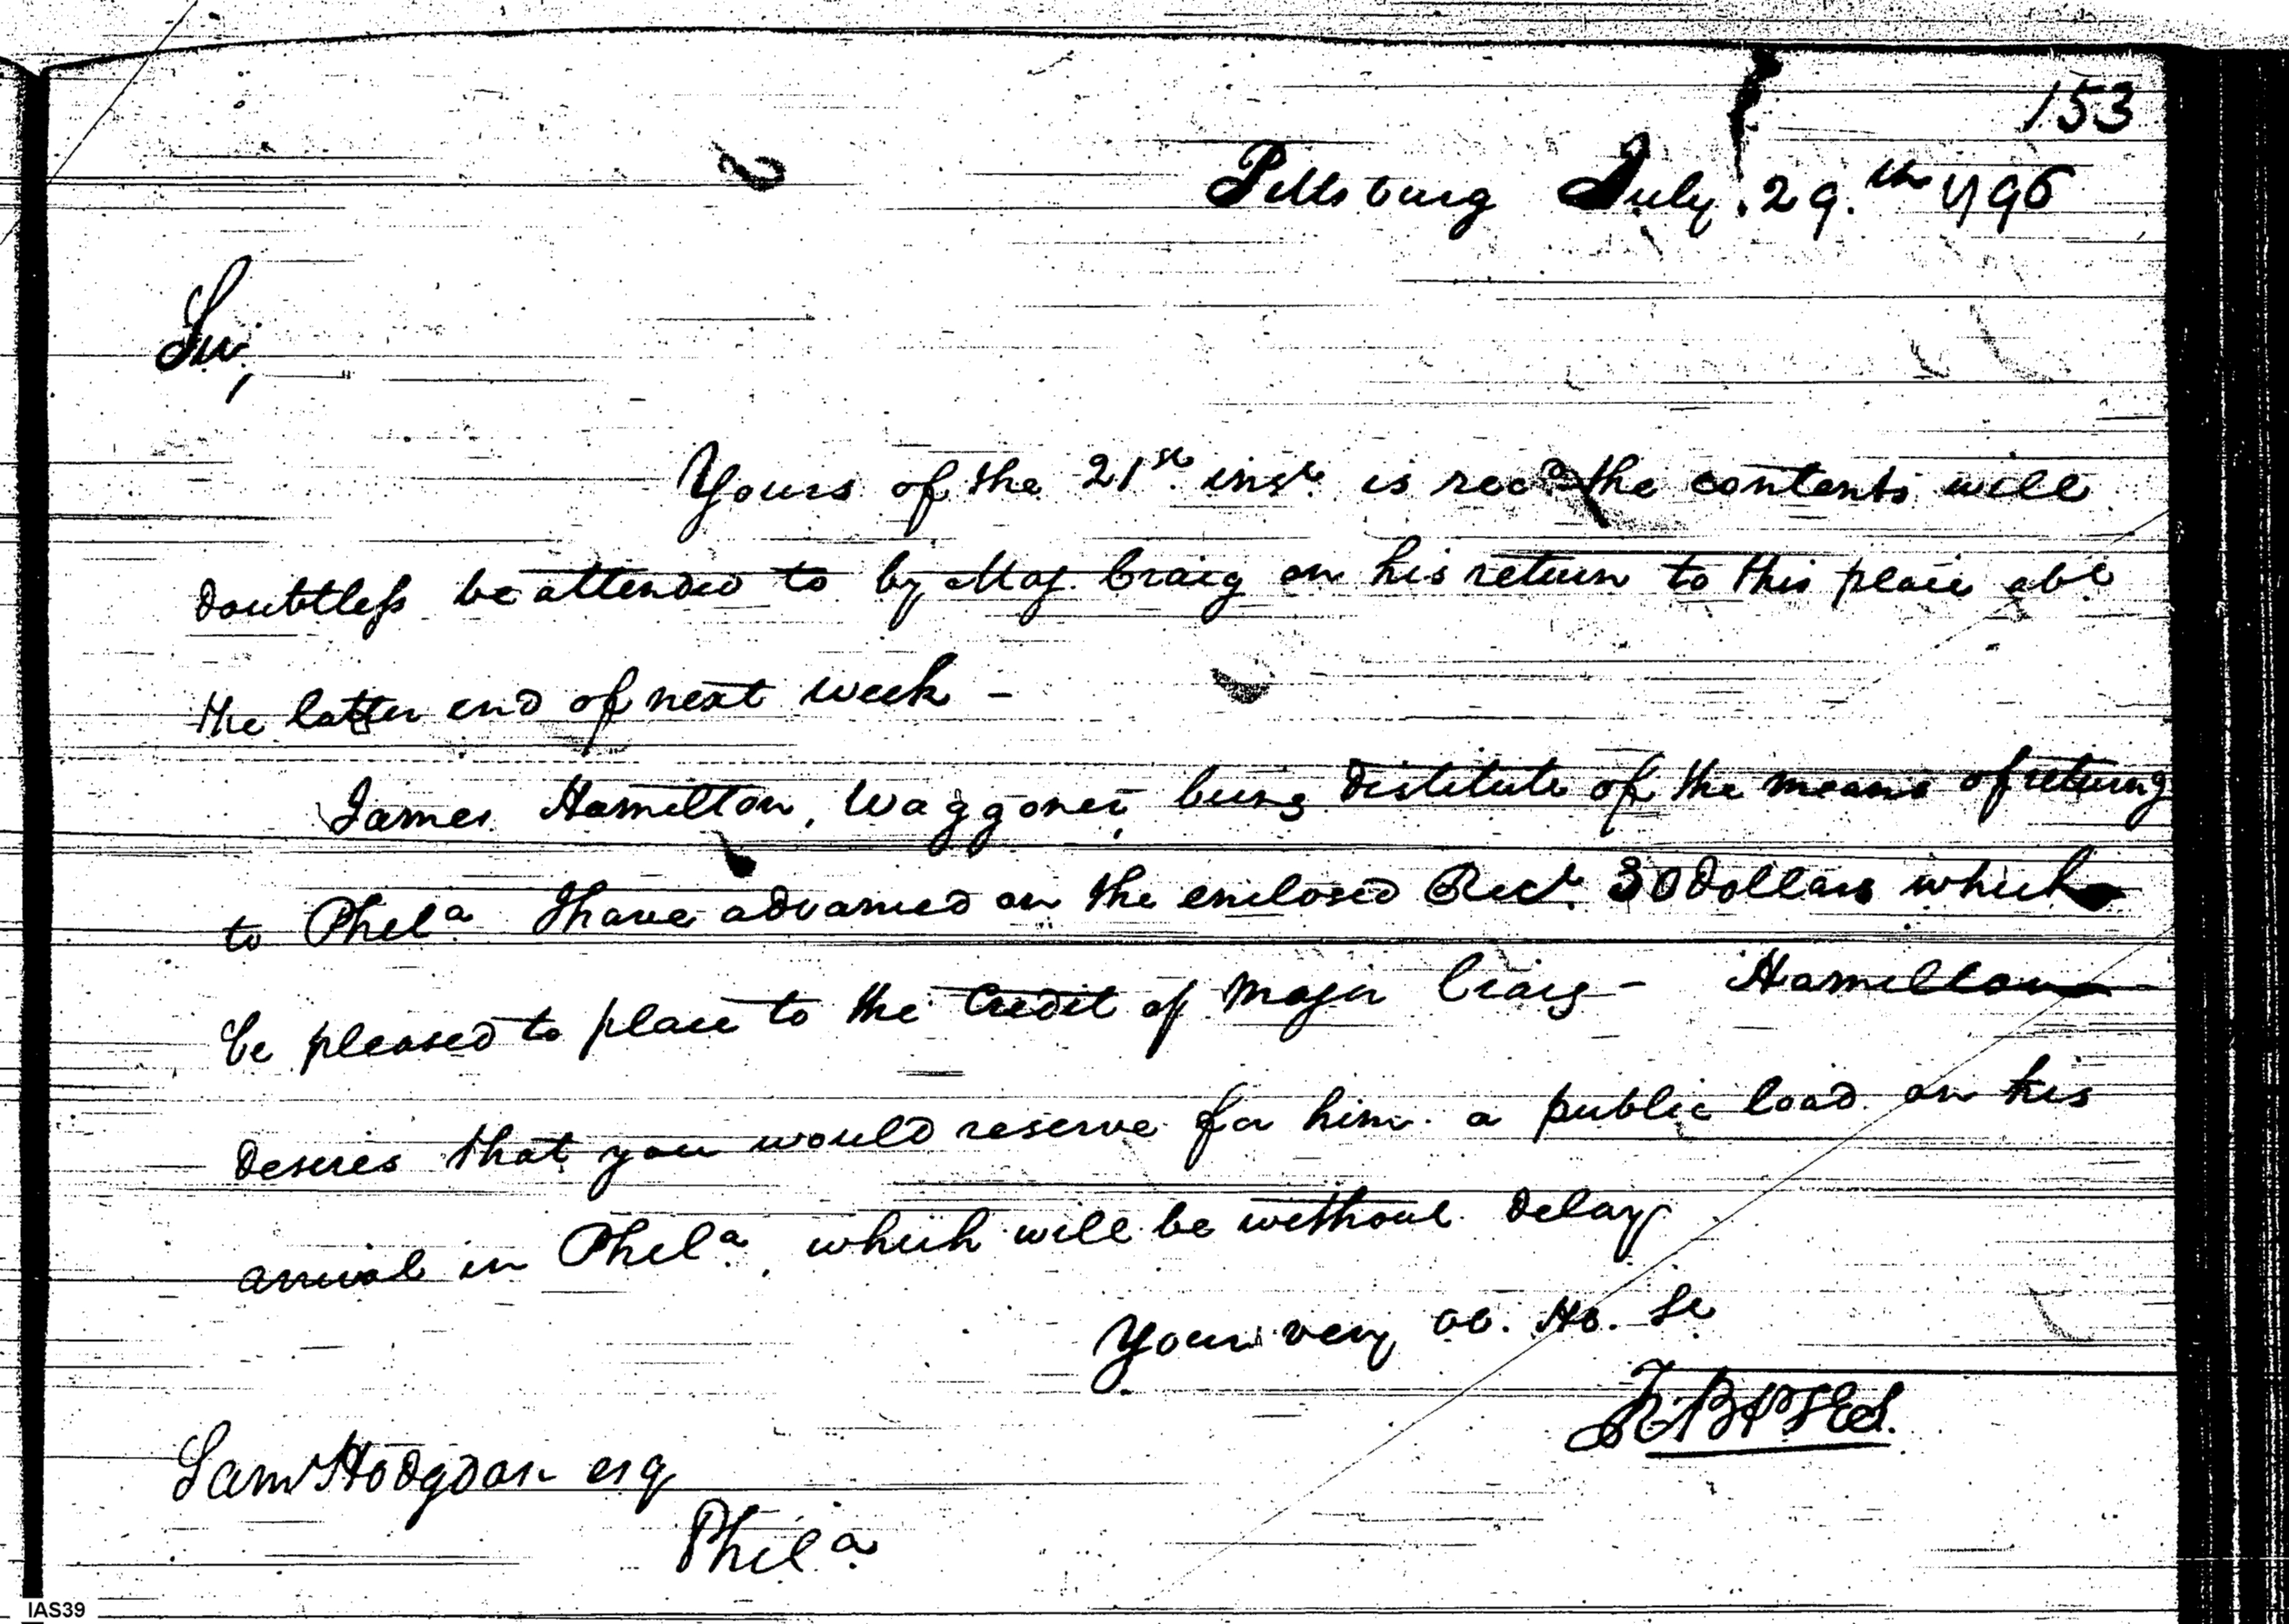 153
Pittsburg July. 29.th 1796
Sir,
Yours of the 21st. inst. is recd. the contents will
doubtless be attended to by Maj. Craig on his return to this place abt.
the latter end of next week -
James Hamilton, Waggoner, being distitute of the means of returng
to Phila. I have advanced on the enclosed Rect. 30 dollars which
be pleased to place to the Credit of Major Craig - Hamilton
desires that you would reserve for him a public load on his
arrival in Phila., which will be without delay
Your very ob. Hb. St
Saml Hodgdon esq
Phila.
IAS39